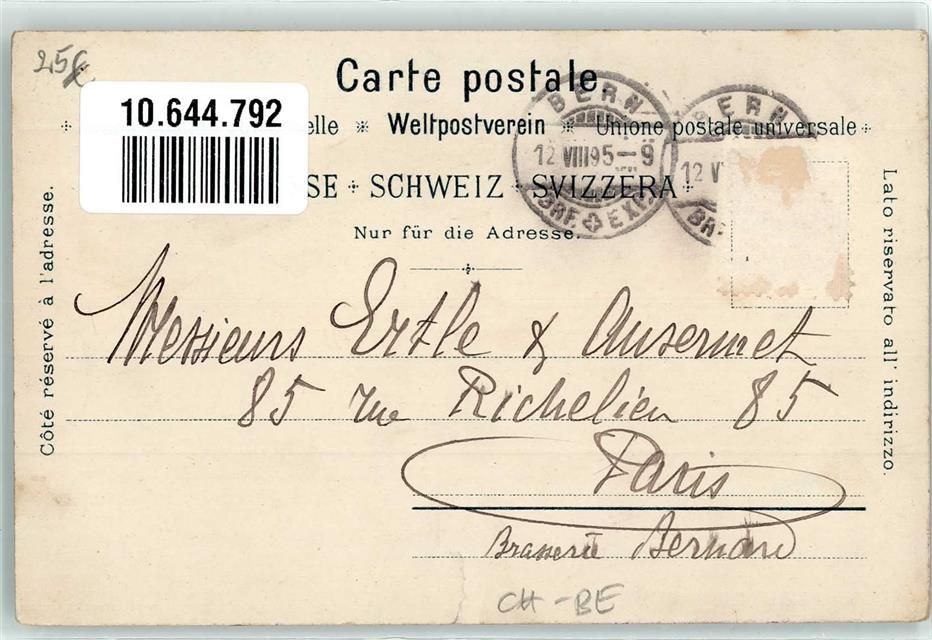 25
Carte postale.
10.644.792
elle * Weltpostverein * Unione postale universale
SE + SCHWEIZ + SVIZZERA
Nur für die Adresse.
BERN
12 VIII 95-9
BRF. EXP.
BERN
12 V
BR
Côté réservé à l'adresse.
Lato riservato all' indirizzo.
Messieurs Ertle & Ansermet
85 rue Richelieu 85
Paris
Brasserie Bernard
CH-BE